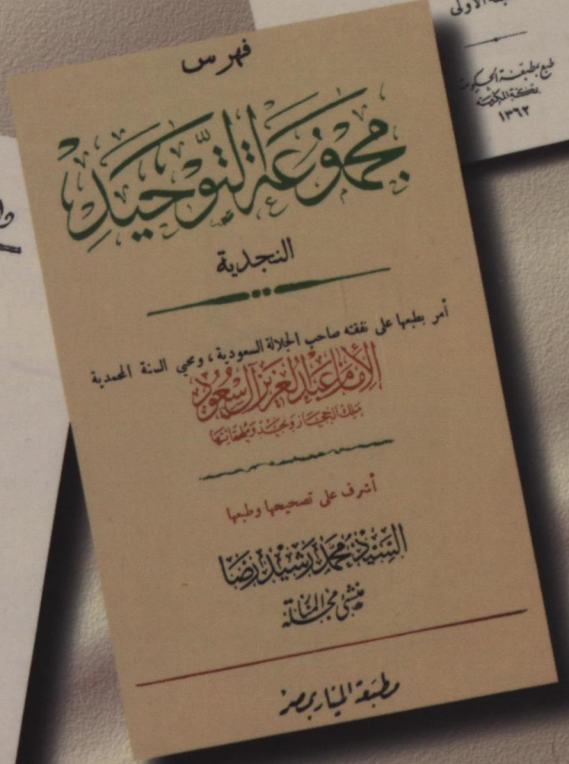 فهرس
مجموعة التوحيد
النجدية
أمر بطبعها على نفقته صاحب الجلالة السعودية ، ومحيي السنة المحمدية
الإمام عبد العزيز آل سعود
ملك الحجاز ونجد وملحقاتها
أشرف على تصحيحها وطبعها
السيد محمد رشيد رضا
منشئ مجلة المنار
مطبعة المنار بمصر
الأولى
طبع بمطبعة الحكومة
بمكة المكرمة
١٣٦٢